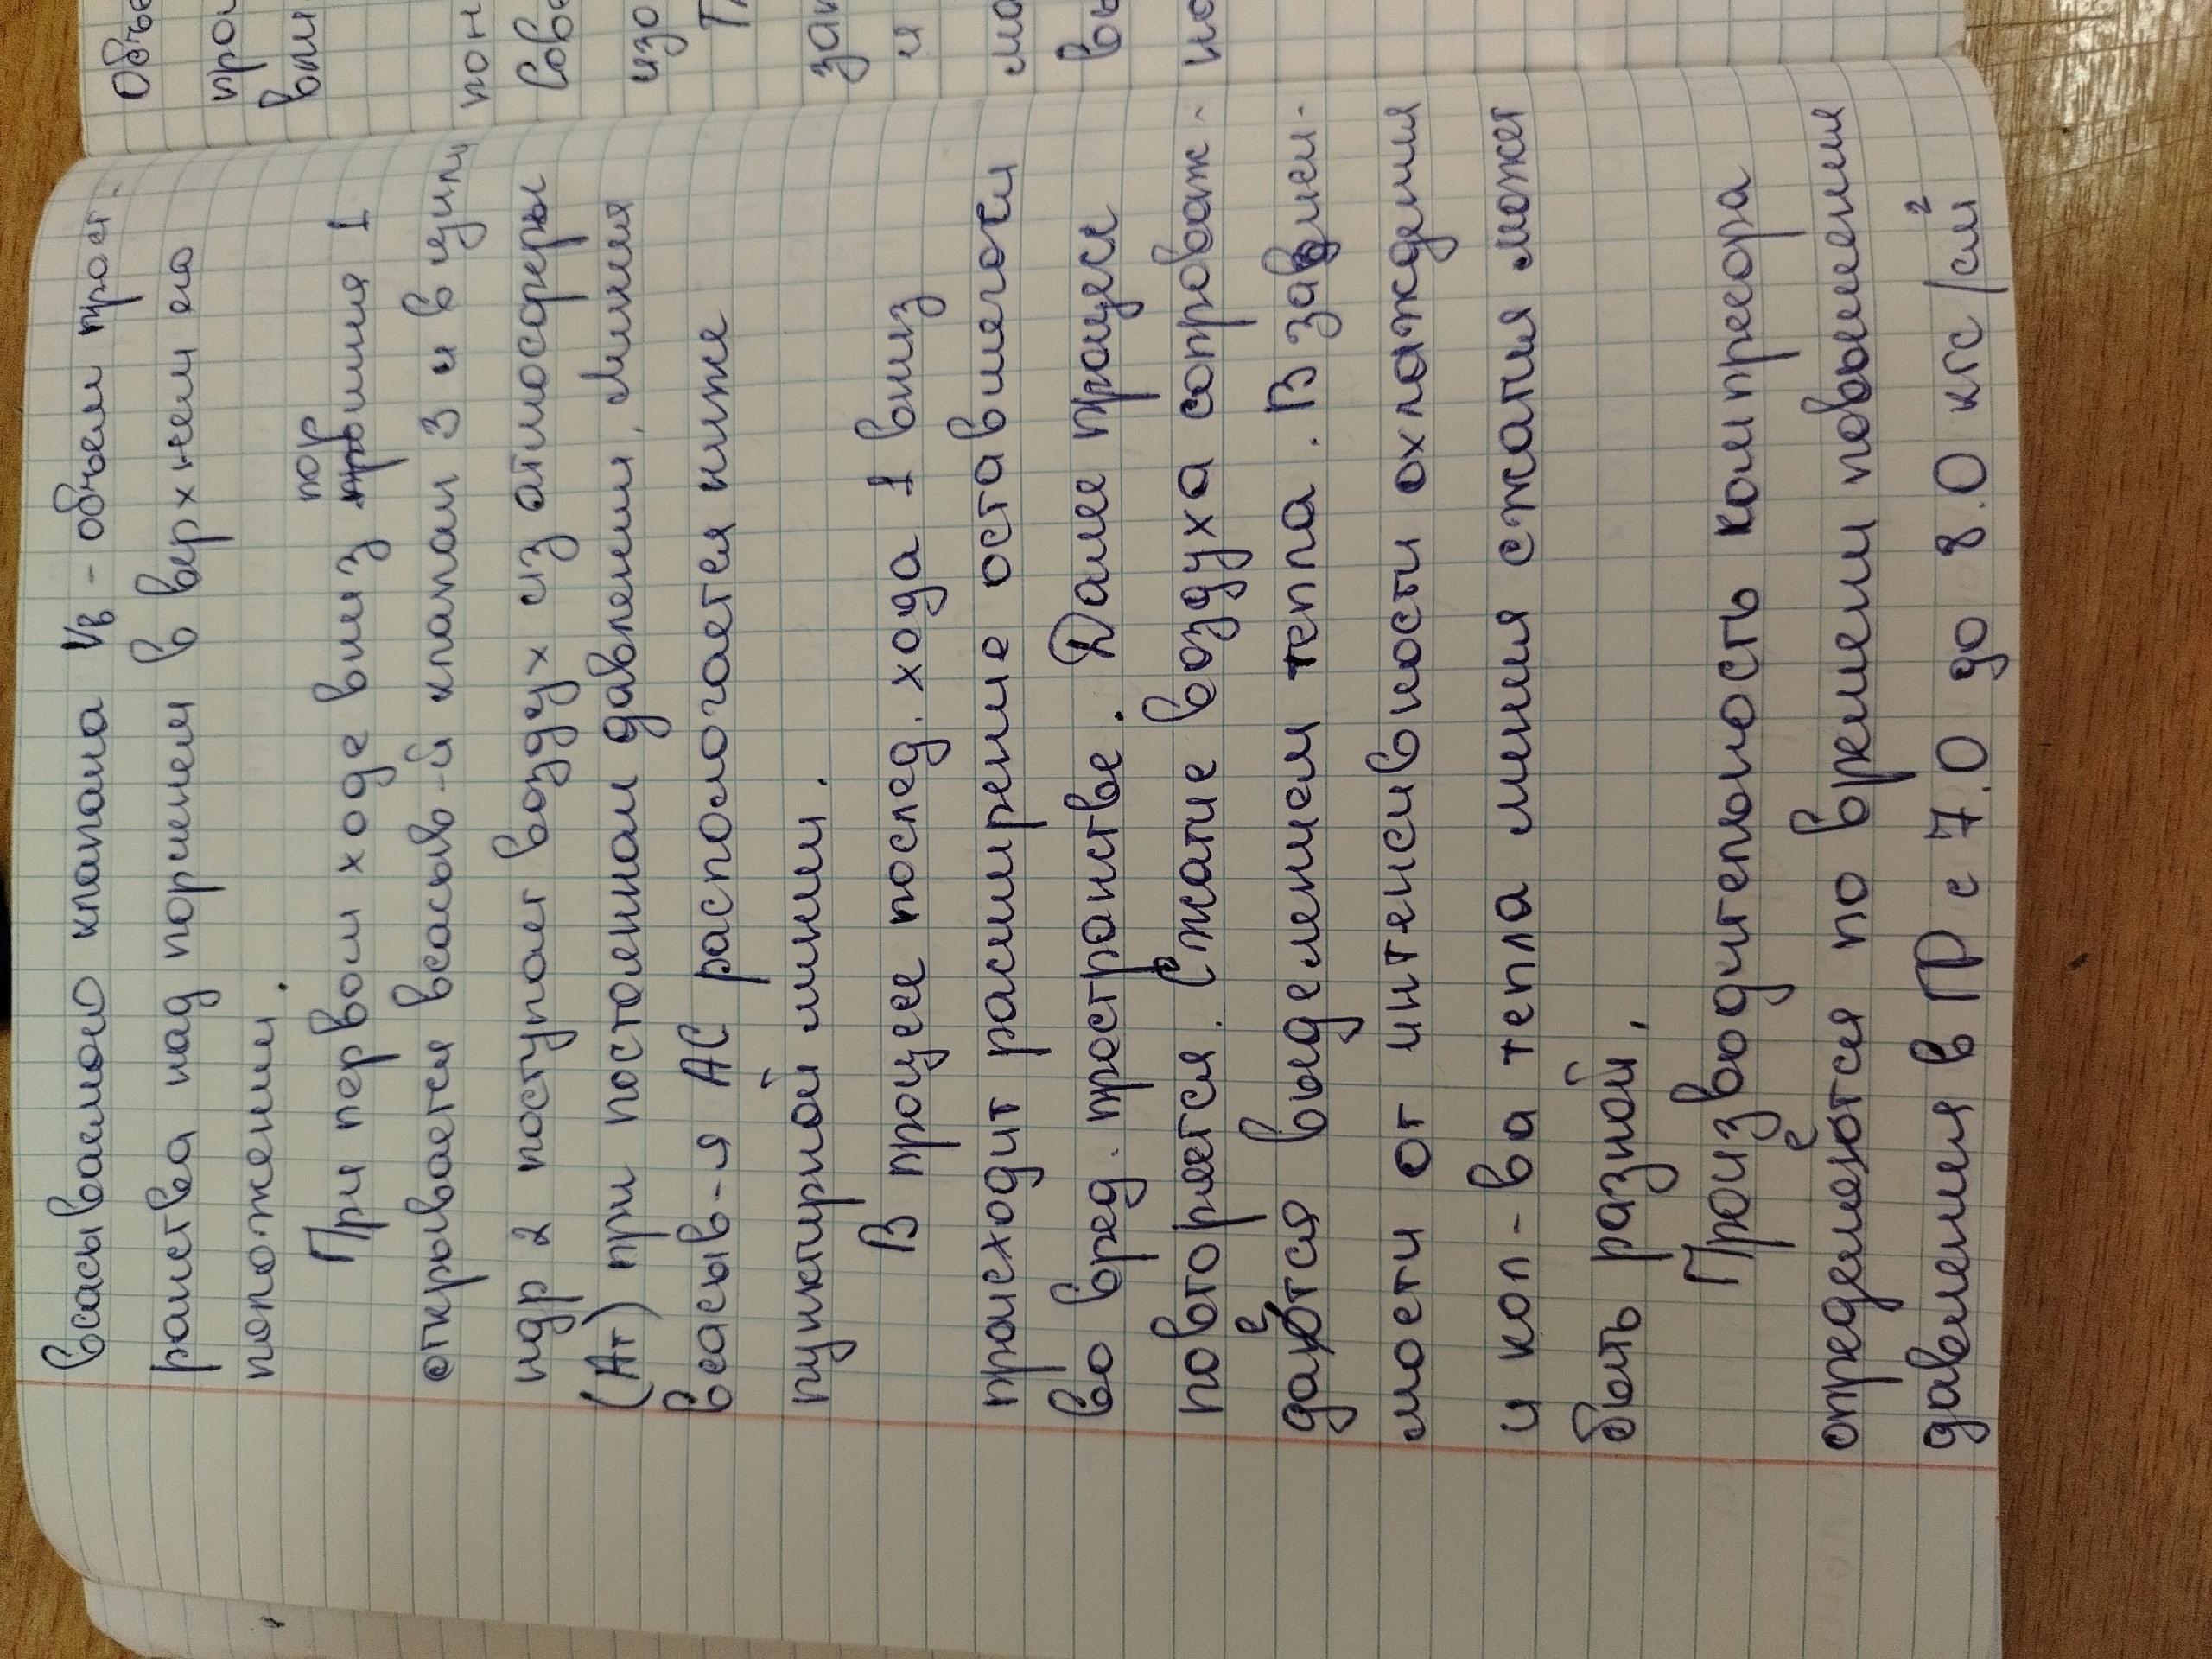 всасываемого клапана Vв - объем прост-
ранства над поршнем в верхнем его
положении.
При первом ходе вниз поршня 1
открывается всасыв-й клапан 3 и в цилин
ндр 2 поступает воздух из атмосферы
(Ат) при постоянном давлении. Линия
всасыв-я АС располагается ниже
пунктирной линии.
В процессе послед. хода 1 вниз
происходит расширение оставшегося
во вред. пространстве. Далее процесс
повторяется. Сжатие воздуха сопровож-
дается выделением тепла. В зависи-
мости от интенсивности охлаждения
и кол-ва тепла линия сжатия может
быть разной.
Производительность компресора
определяется по времени повышения
давления в ГР с 7.0 до 8.0 кгс/см²
Объе
прои
вкл
пон
сове
изо
зак
и
мо
вы